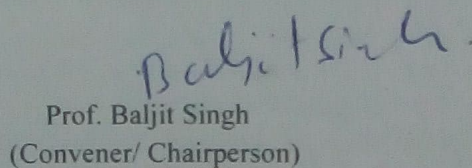 Baljit Singh
Prof. Baljit Singh
(Convener/ Chairperson)